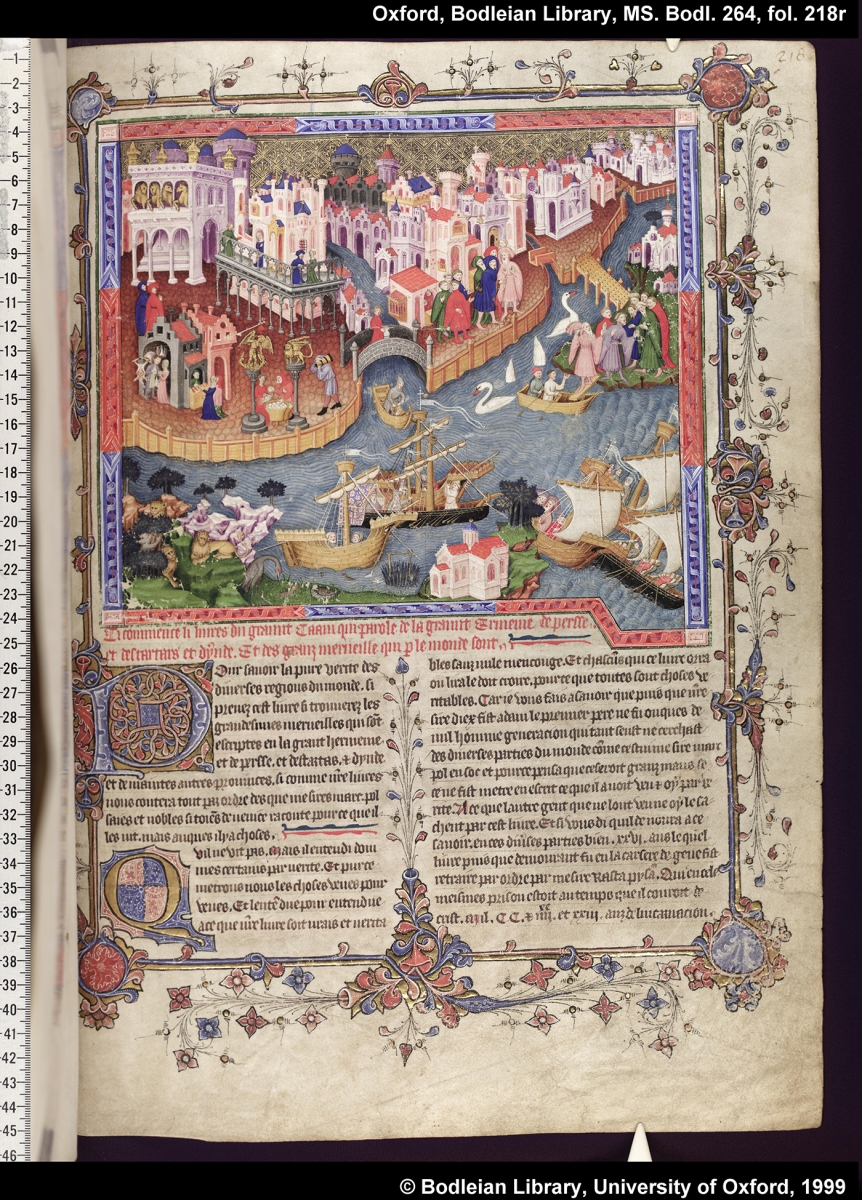 Oxford, Bodleian Library, MS. Bodl. 264, fol. 218r
Ci commence li liures du graunt Caam qui parole de la graunt Ermenie de persse
et des tartars et dynde. Et des granz merueille qui p le monde sont
Pour sauoir la pure verite des
diuerses regions du monde. si
prenez cest liure si trouuerez les
grandismes merueilles qui sont
escriptes en la grant hermenie
et de persse. et des tartars. & dynde
et de maintes autres prouinces. si comme nre liures
nous contera tout par ordre des que me sires marc pol
saies et nobles citoiens de uenice raconte pour ce que il
les uit. mais auques il y a choses.
Quil ne vit pas. mais il entendi dom
mes certains par uerite. Et pur ce
metrons nous les choses veues pour
veues. Et lentendue pour entendue
a ce que nre liure soit urais et uerita
bles sanz nule mencouge. Et chascuns qui ce liure orra
ou lira le doit croire. pour ce que toutes sont choses ve
ritables. Car ie vous fais a sauoir que puis que nre
sire diex fist adam le premier pere ne fu onques de
nul homme generacion qui tant seust ne cerchast
des diuerses parties du monde come cestui me sire marc
pol en soe et pour ce pensa que ce seroit granz maus se
ce ne fist metre en escrit ce que il a uoit veu & oy par ue
rite. A ce que lautre gent que ne lont veuue oy le sa
chent par cest liure. Et si vous di quil demoura a ce
sauoir. en ces diuses parties bien. xxvi. ans le quel
liure puis que demourant fu en la carsere de gene fist
retraire par ordre par me sire Rasta pysan. Qui en cele
meismes prison estoit au temps que il couroit de
crist. mil. CC. & iiii. et xviii. anz de lincarnacion.
© Bodleian Library, University of Oxford, 1999